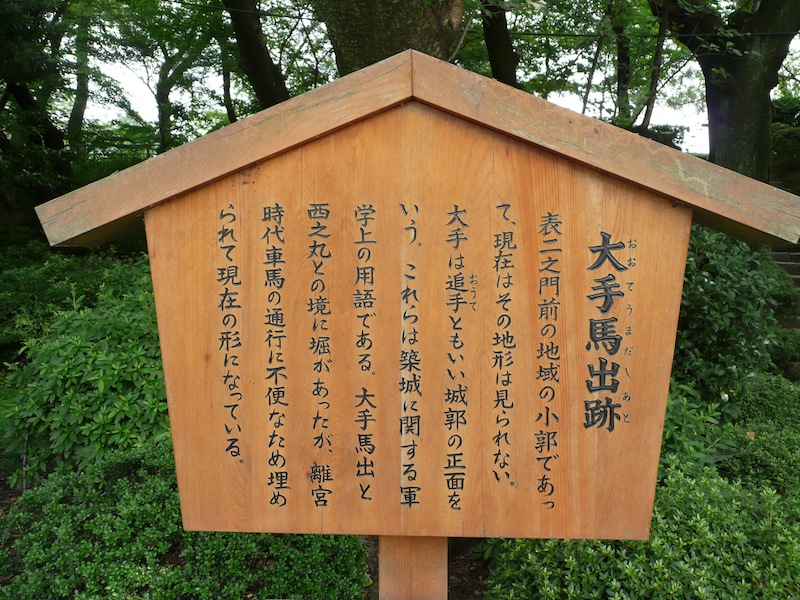 大手馬出跡
おおてうまだしあと
表二之門前の地域の小郭であっ
て、現在はその地形は見られない。
大手は追手ともいい城郭の正面を
おうて
いう。これらは築城に関する軍
学上の用語である。大手馬出と
西之丸との境に堀があったが、離宮
時代車馬の通行に不便なため埋め
られて現在の形になっている。